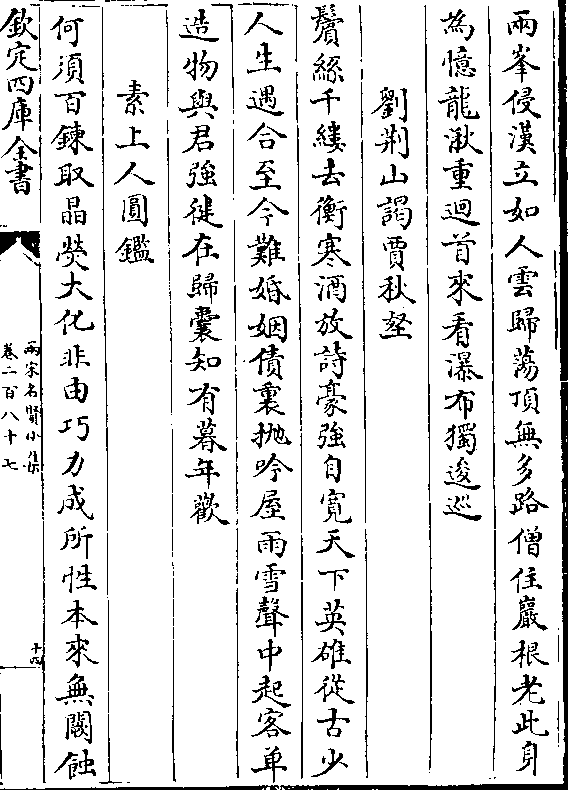 兩峯侵漢立如人雲歸蕩頂無多路僧住巖根老此身
為憶龍湫重迴首來看瀑布獨逡巡
劉荆山謁賈秋壑
鬢絲千縷去衝寒酒放詩豪強自寛天下英雄從古少
人生遇合至今難婚姻債裏抛吟屋雨雪聲中起客單
造物與君強健在歸囊知有暮年歡
素上人圓鑑
何須百鍊取晶熒大化非由巧力成所性本來無闕蝕
欽定四庫全書
兩宋名賢小集
卷二百八十七
十四